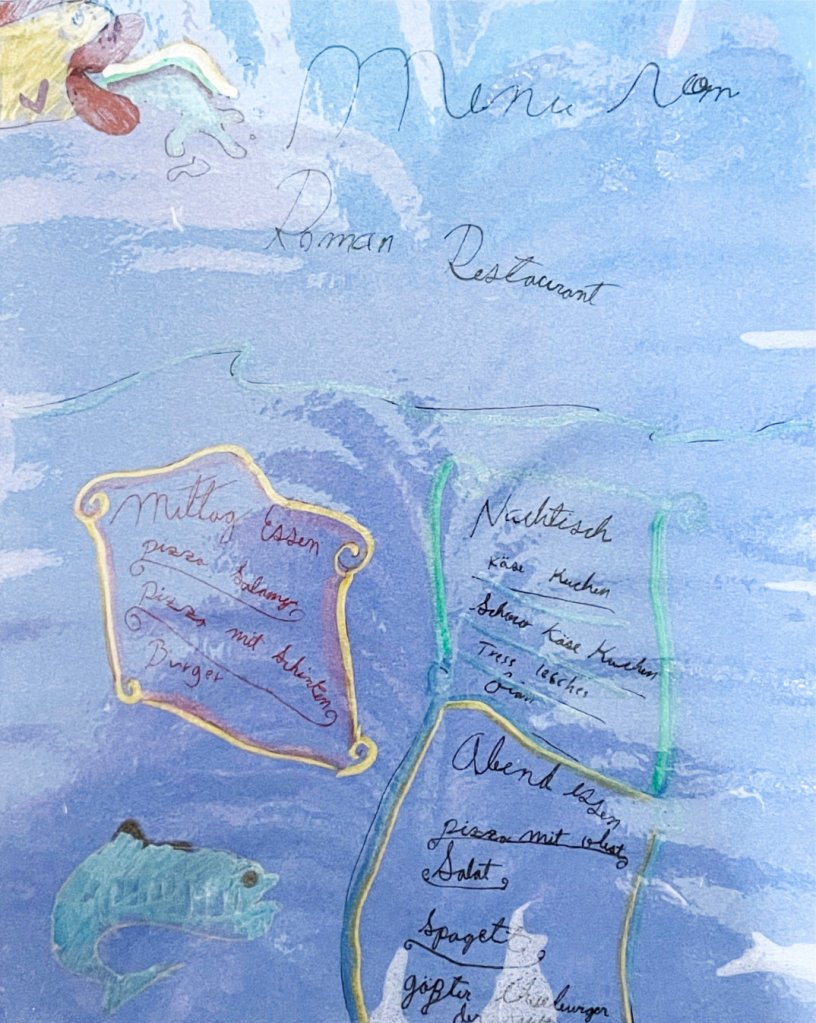 Menu von
Roman Restaurant
Mittag Essen
pizza Salamy
pizza mit Schinken
Burger
Nachtisch
Käse Kuchen
Schoco Käse Kuchen
Tress lesches
Abend essen
pizza mit obst
Salat
Spaget
der